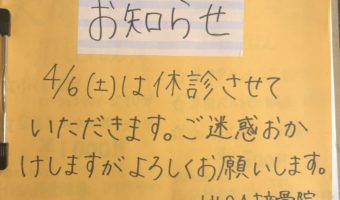 お知らせ
4/6(土)は休診させて
いただきます。ご迷惑おか
けしますがよろしくお願いします。